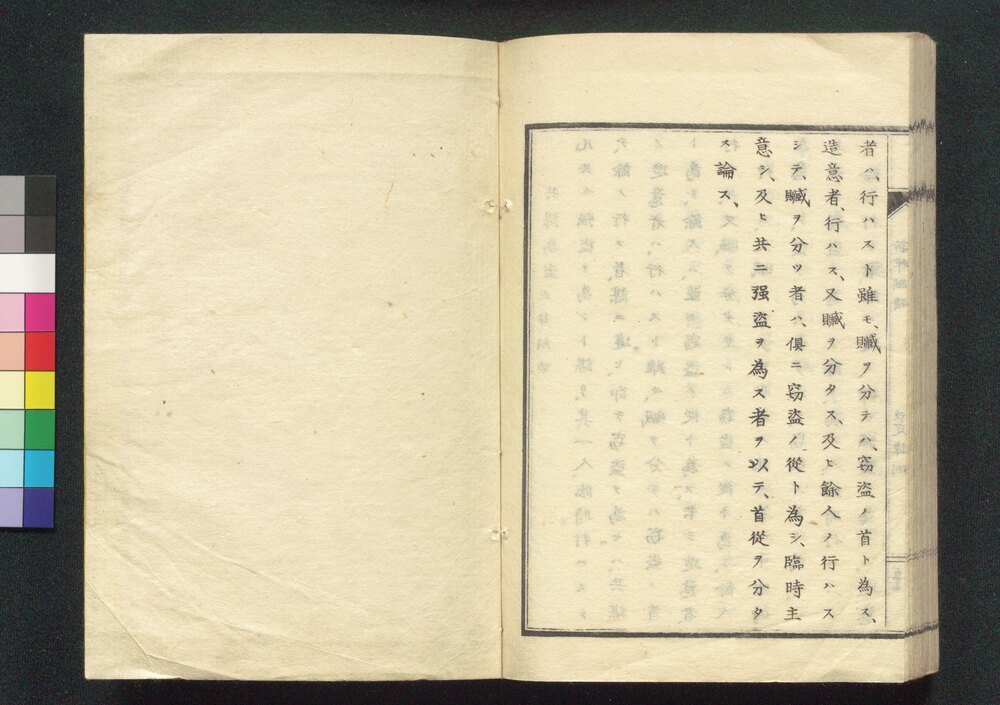 者ハ、行ハスト雖モ、贓ヲ分テハ、窃盗ノ首ト為ス、
造意者、行ハス、又贓ヲ分タス、及ヒ餘人ノ行ハス
シテ、贓ヲ分ツ者ハ、俱ニ窃盗ノ從ト為シ、臨時主
意シ、及ヒ共ニ强盗ヲ為ス者ヲ以テ、首從ヲ分タ
ス論ス、